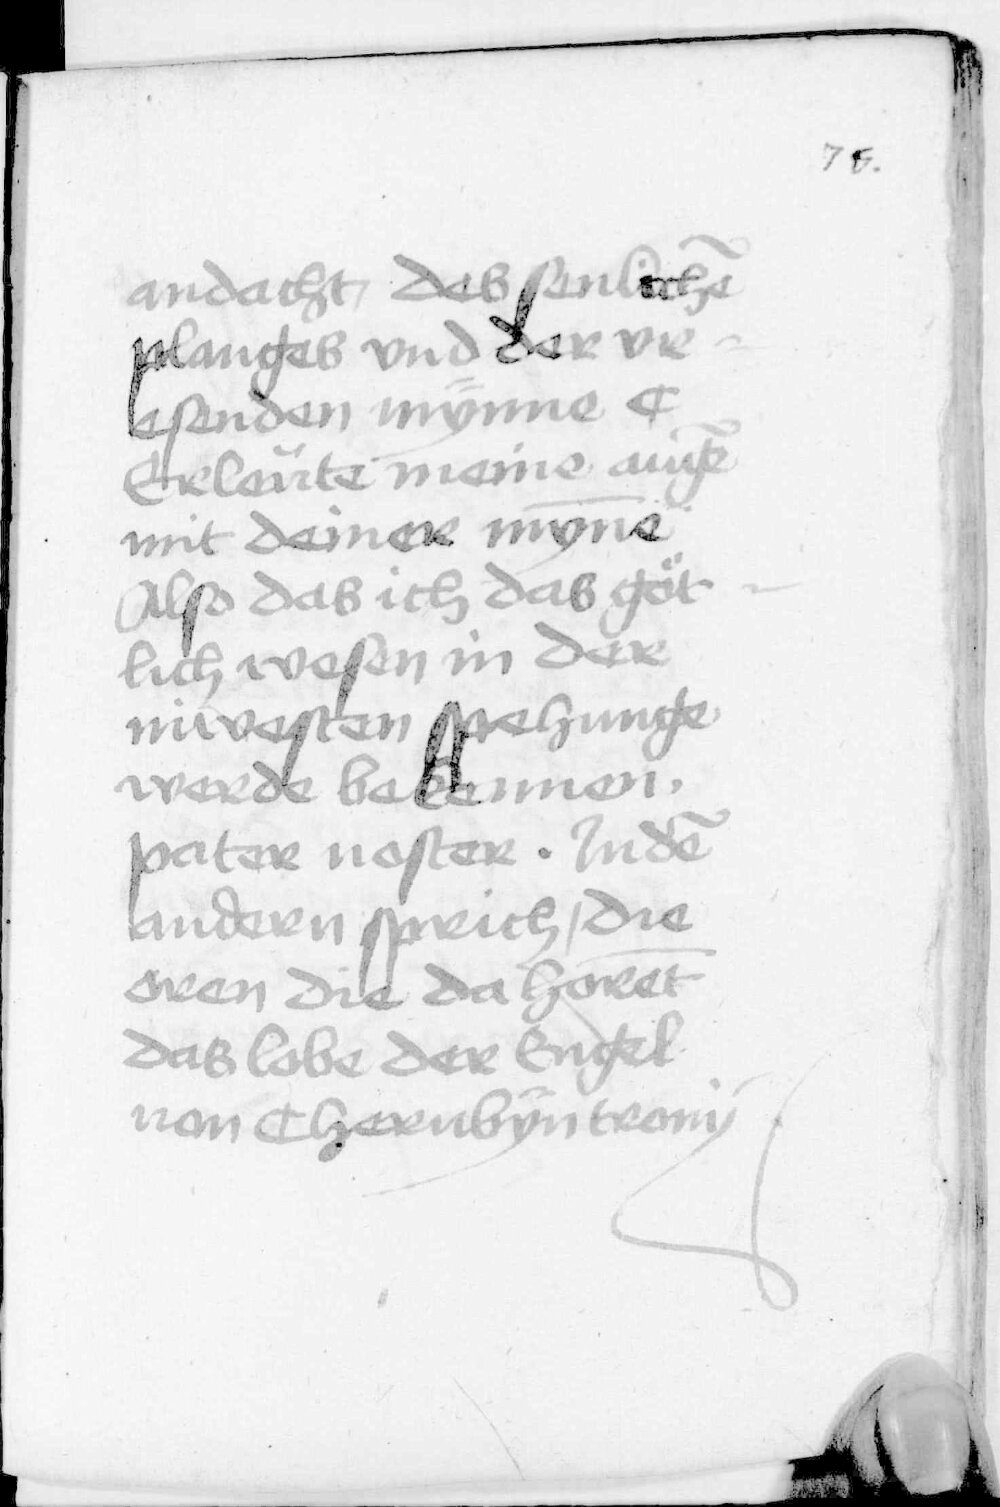 78.
andacht, des senlichē
planges vnd der vr -
esenden mÿnne C
Erleüte meine augē
mit deiner myn̄e
Also das ich das göt -
lich wesen in der
niwesten spehunge
werde bekennen.
pater noster. Indē
andern sprich / die
oren die da horet̄
das lobe der Engel
von Cherubÿn tronij